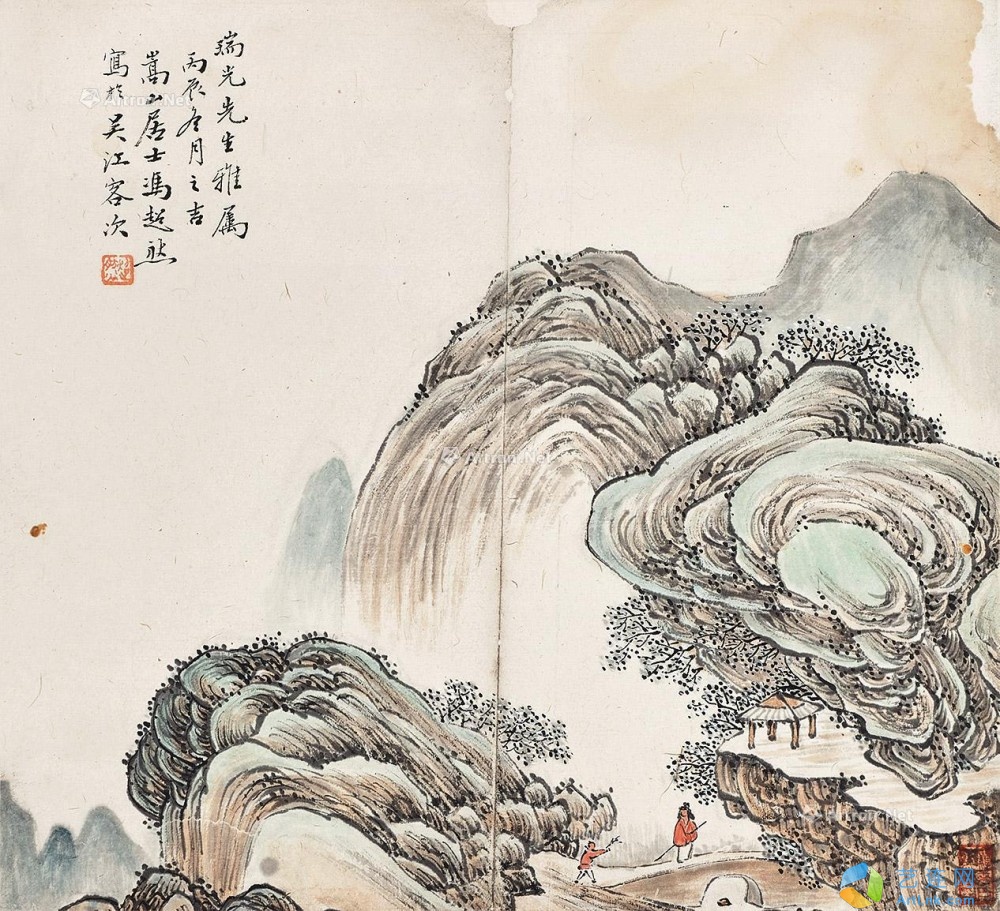 瑞光先生雅属
丙辰冬月之吉
嵩山居士馮超然
寫於吴江客次
Artron.Net
Artron.Net
艺途网